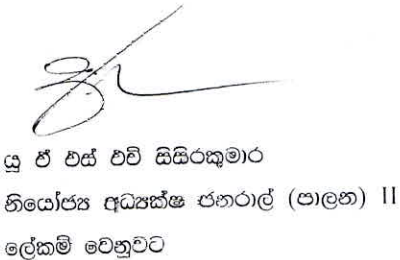 යු ඒ එස් එච් සිසිරකුමාර
නියෝජ්‍ය අධ්‍යක්ෂ ජනරාල් (පාලන) II
ලේකම් වෙනුවට